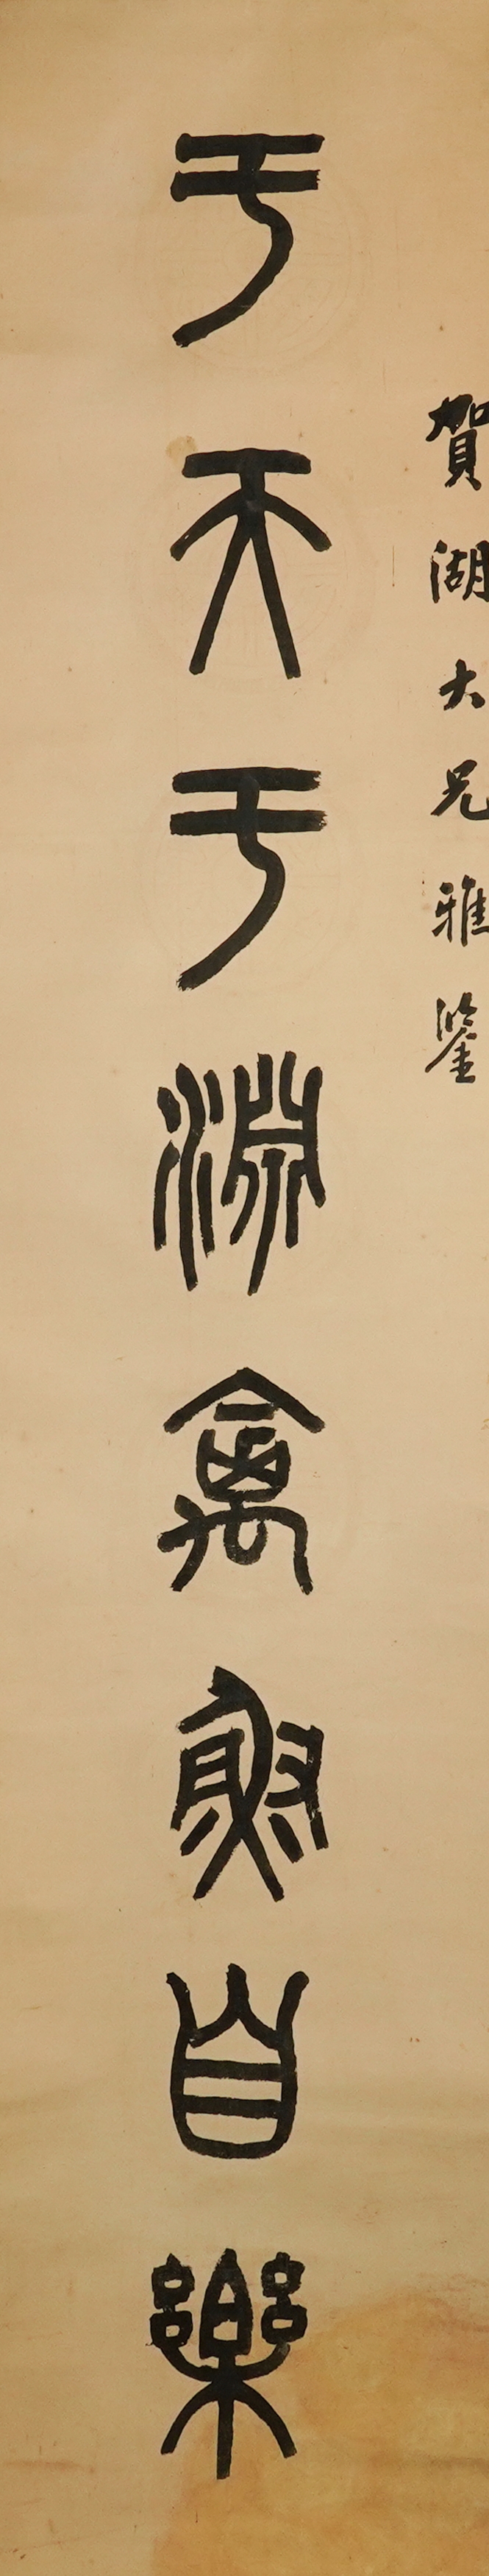 賀湖大兄雅鑒
于天于淵禽魚自樂